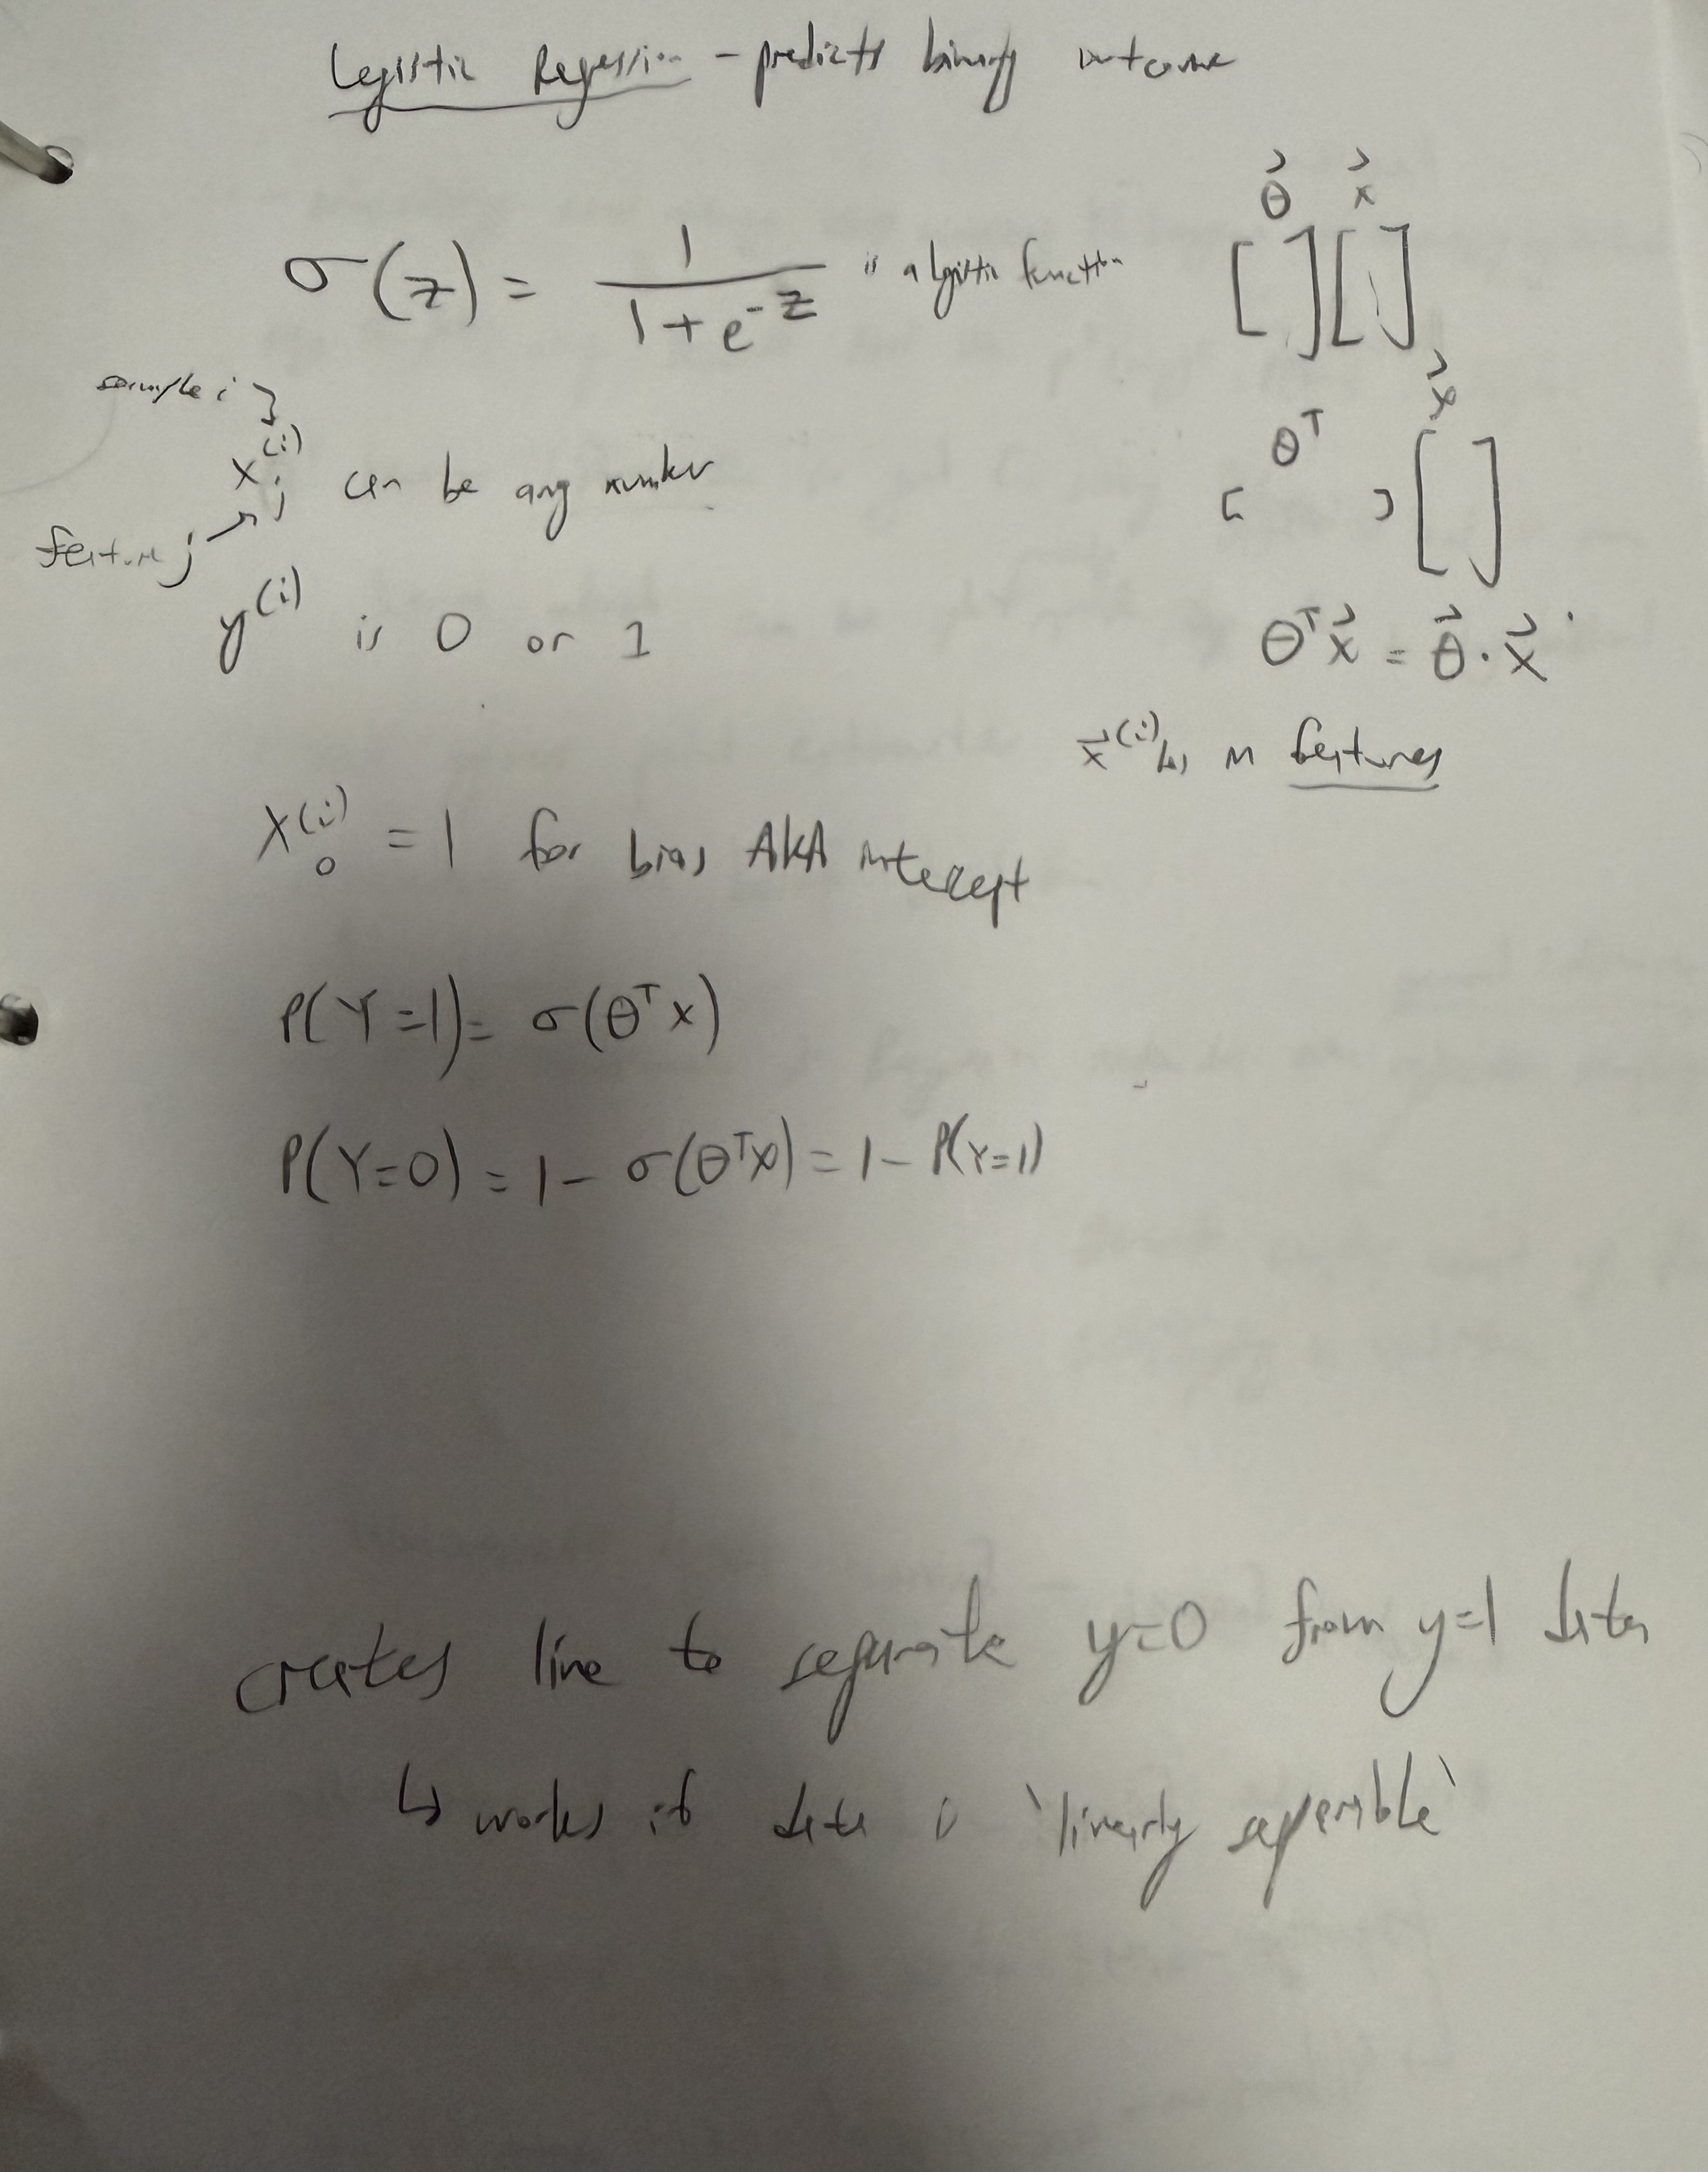 Logistic Regression - predicts binary outcome
σ(z) = 1 / (1 + e^-z) is a logistic function
θ⃗ x⃗
[ ] [ ]
sample i
x_j^(i) can be any number
feature j
y^(i) is 0 or 1
θ^T x⃗
[ ] [ ]
θ^T x⃗ = θ⃗ · x⃗
x⃗^(i) has m features
x_0^(i) = 1 for bias AKA intercept
P(Y=1) = σ(θ^T x)
P(Y=0) = 1 - σ(θ^T x) = 1 - P(Y=1)
creates line to separate y=0 from y=1 data
↳ works if data is 'linearly seperable'